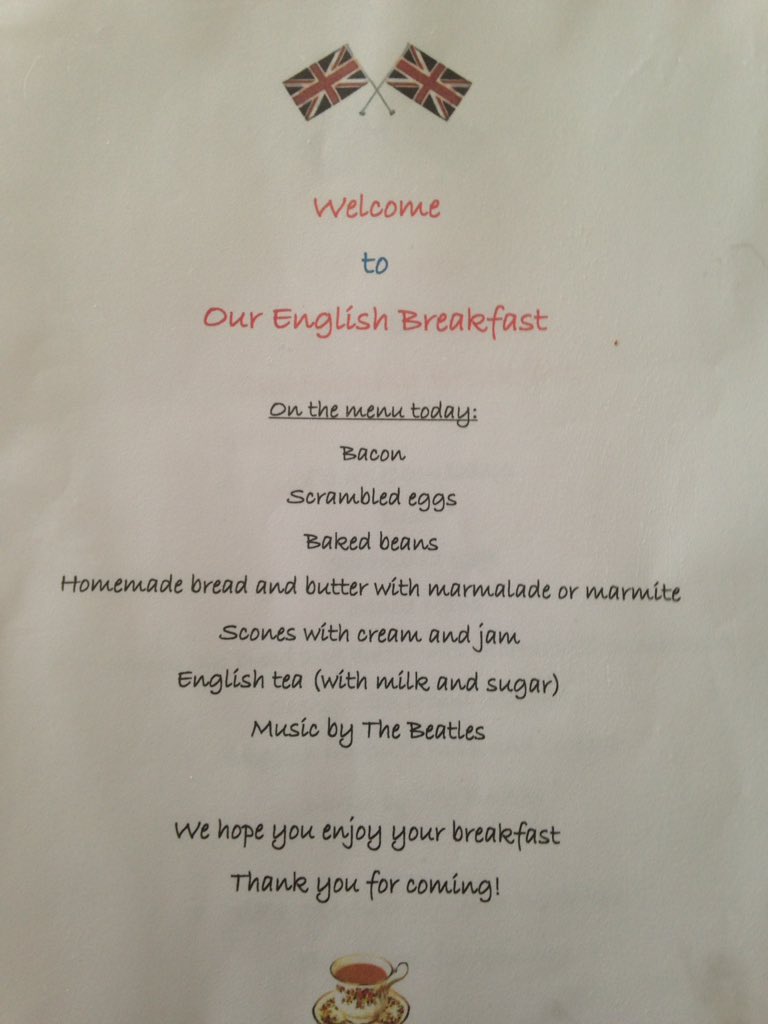 Welcome
to
Our English Breakfast
On the menu today:
Bacon
Scrambled eggs
Baked beans
Homemade bread and butter with marmalade or marmite
Scones with cream and jam
English tea (with milk and sugar)
Music by The Beatles
We hope you enjoy your breakfast
Thank you for coming!